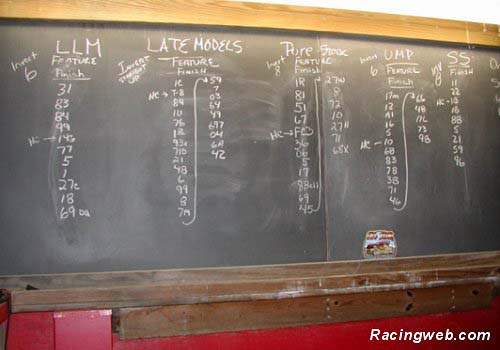 LLM
Invert
6
Feature
Finish
31
83
84
99
HC → 14s
77
5
1
27c
18
69 DQ
LATE MODELS
INVERT
STRAIGHT
UP
Feature
FINISH
1c
HC → 7-11
84
10
76
1B
93c
71D
21
4B
6
99
8
7m
59
7
03
64
49
697
04
6A
42
Pure Stock
Invert
8
Feature
Finish
1R
81
51
67
HC → F5
36
06
5
17
88
69
45
27
8
72
10
27
71
68x
UMP
Invert
6
Feature
Finish
17m
12
A1
16
5
HC → 10
6B
83
78
3B
71
46
66
4B
1L
73
9B
SS
INV
8
Finish
11
22
HC → 18
18
88
5
21
59
96
Racingweb.com